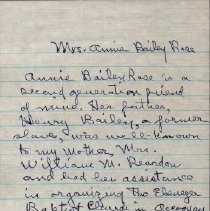 Mrs. Annie Bailey Rose
Annie Bailey Rose is a
second generation friend
of mine. Her father,
Henry Bailey, a former
slave, was well-known
to my Mother, Mrs.
William M. Reardon
and had her assistance
in organizing the Ebenezer
Baptist Church in Occoquan